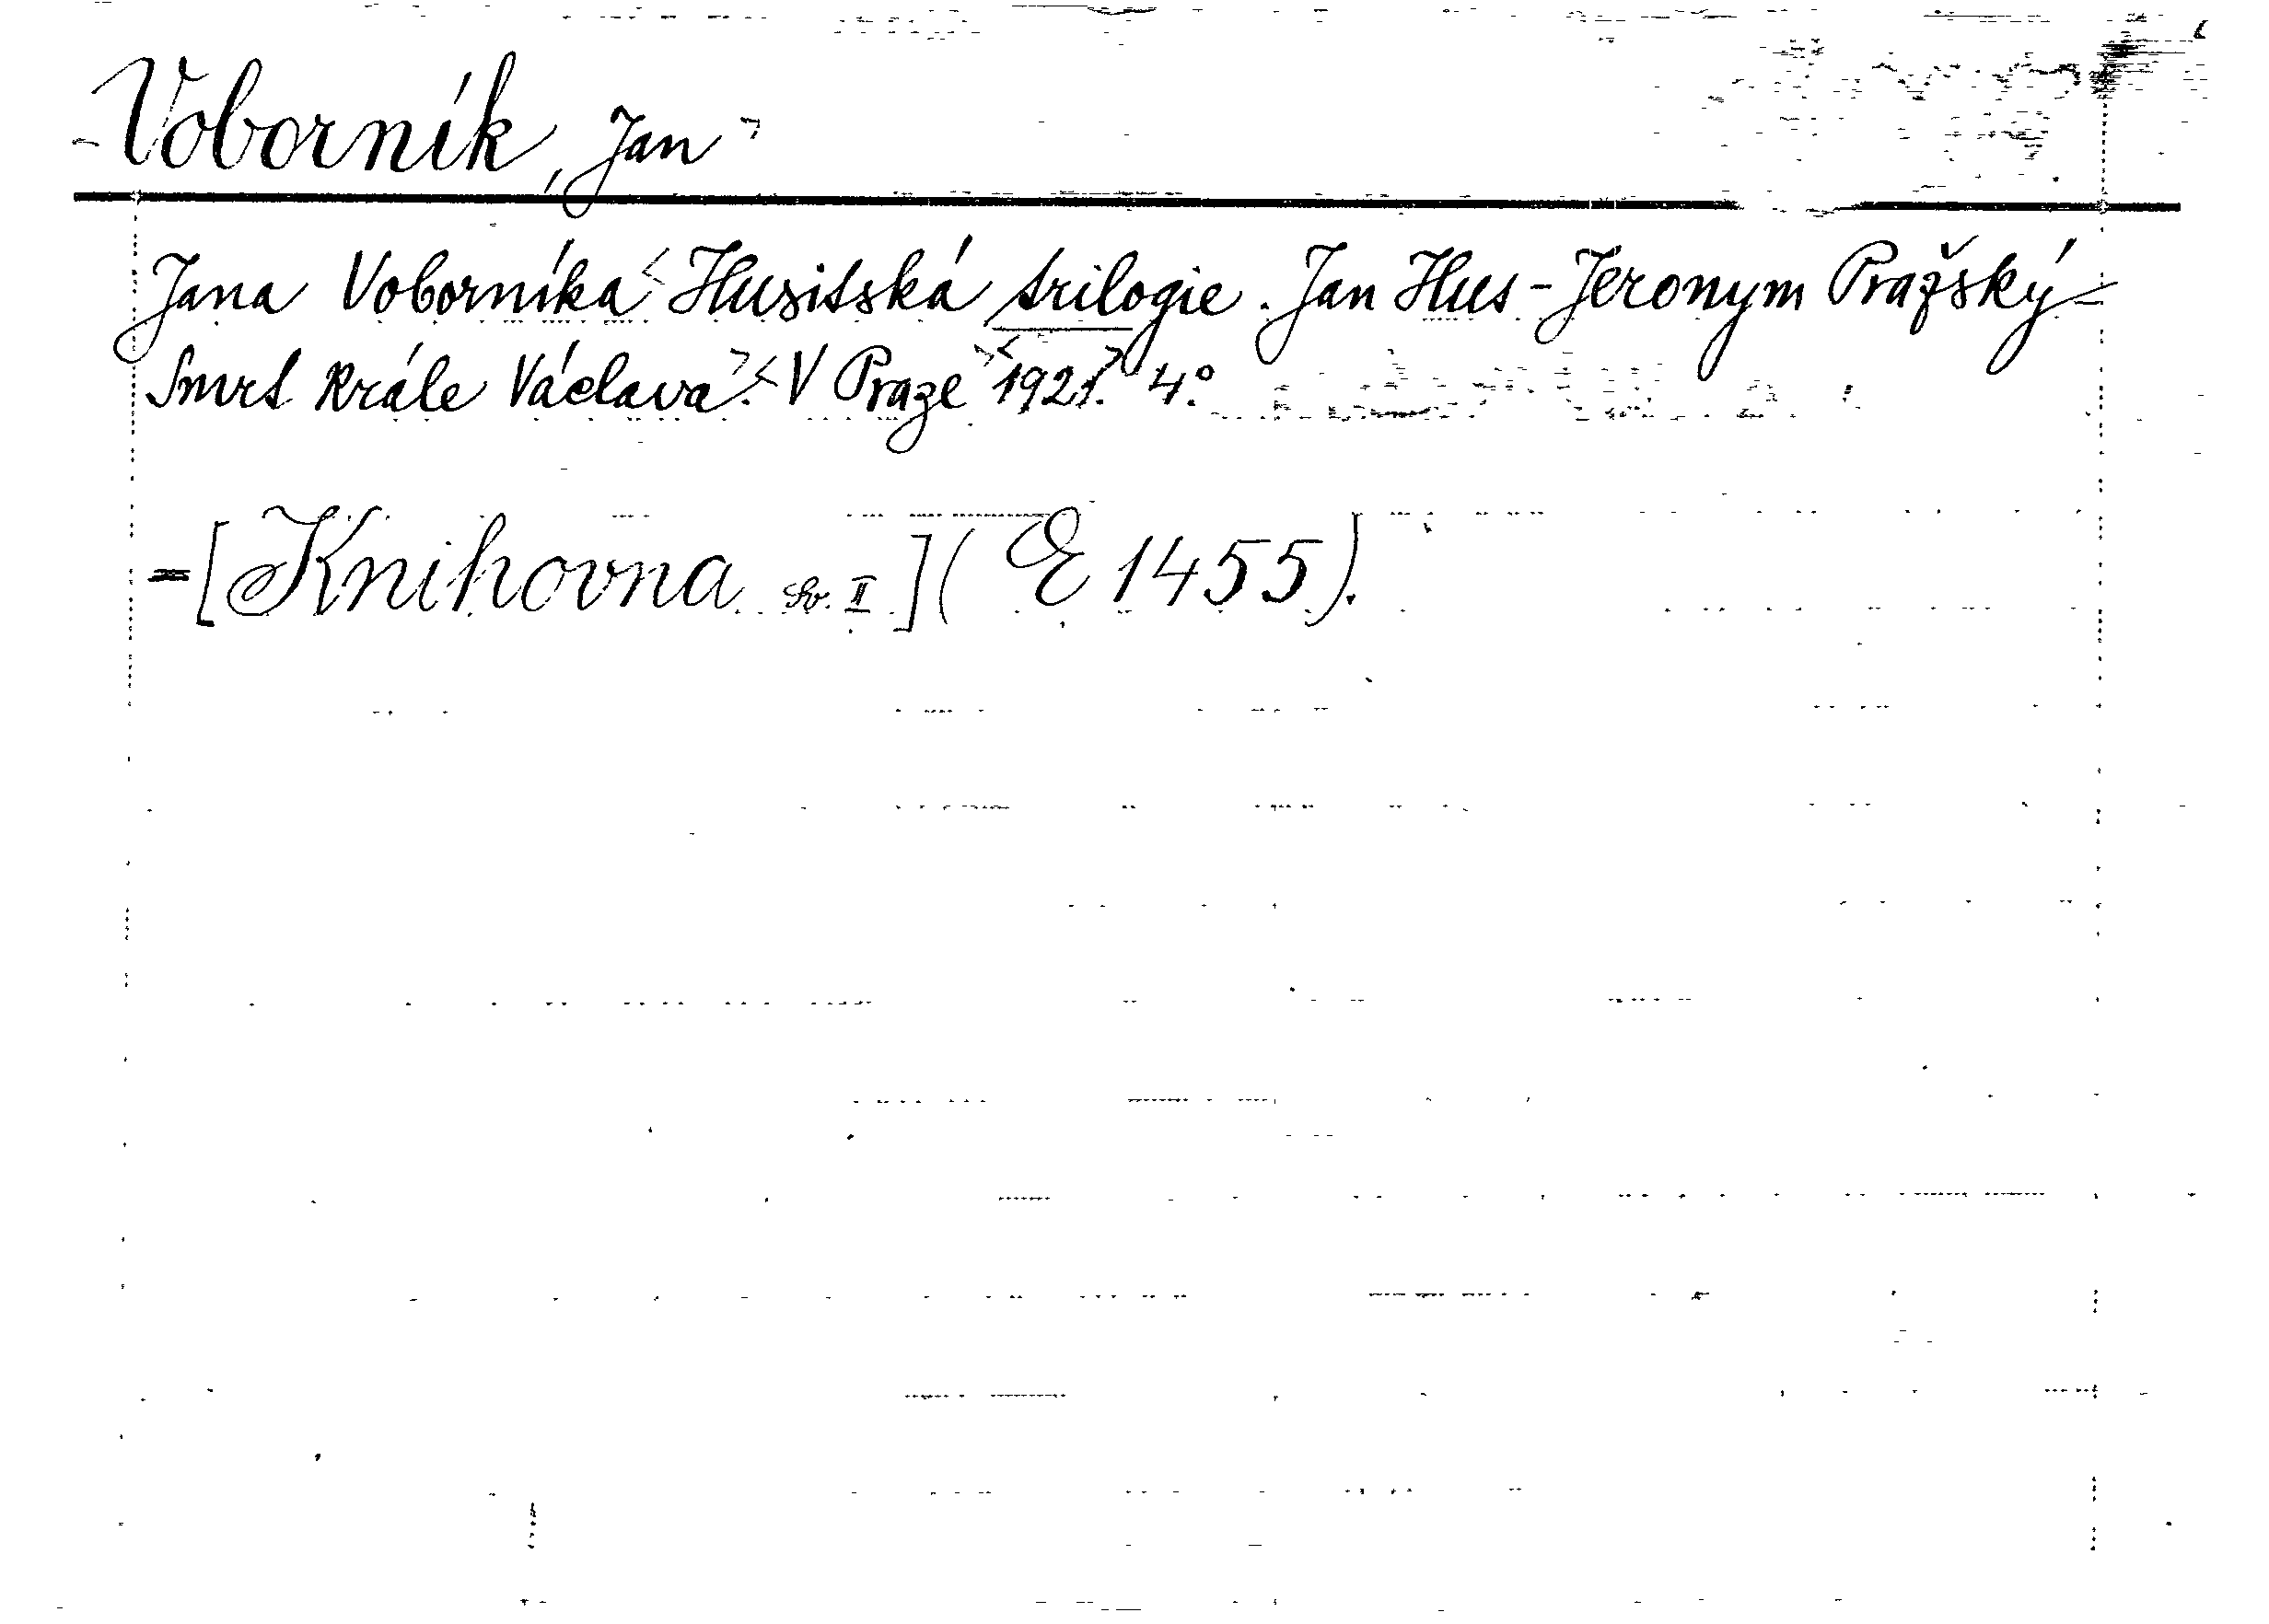 Voborník, Jan
Jana Voborníka Husitská trilogie. Jan Hus - Jeronym Pražský -
Smrt krále Václava. V Praze 1921. 4°.
= [Knihovna sv. II] (E 1455).